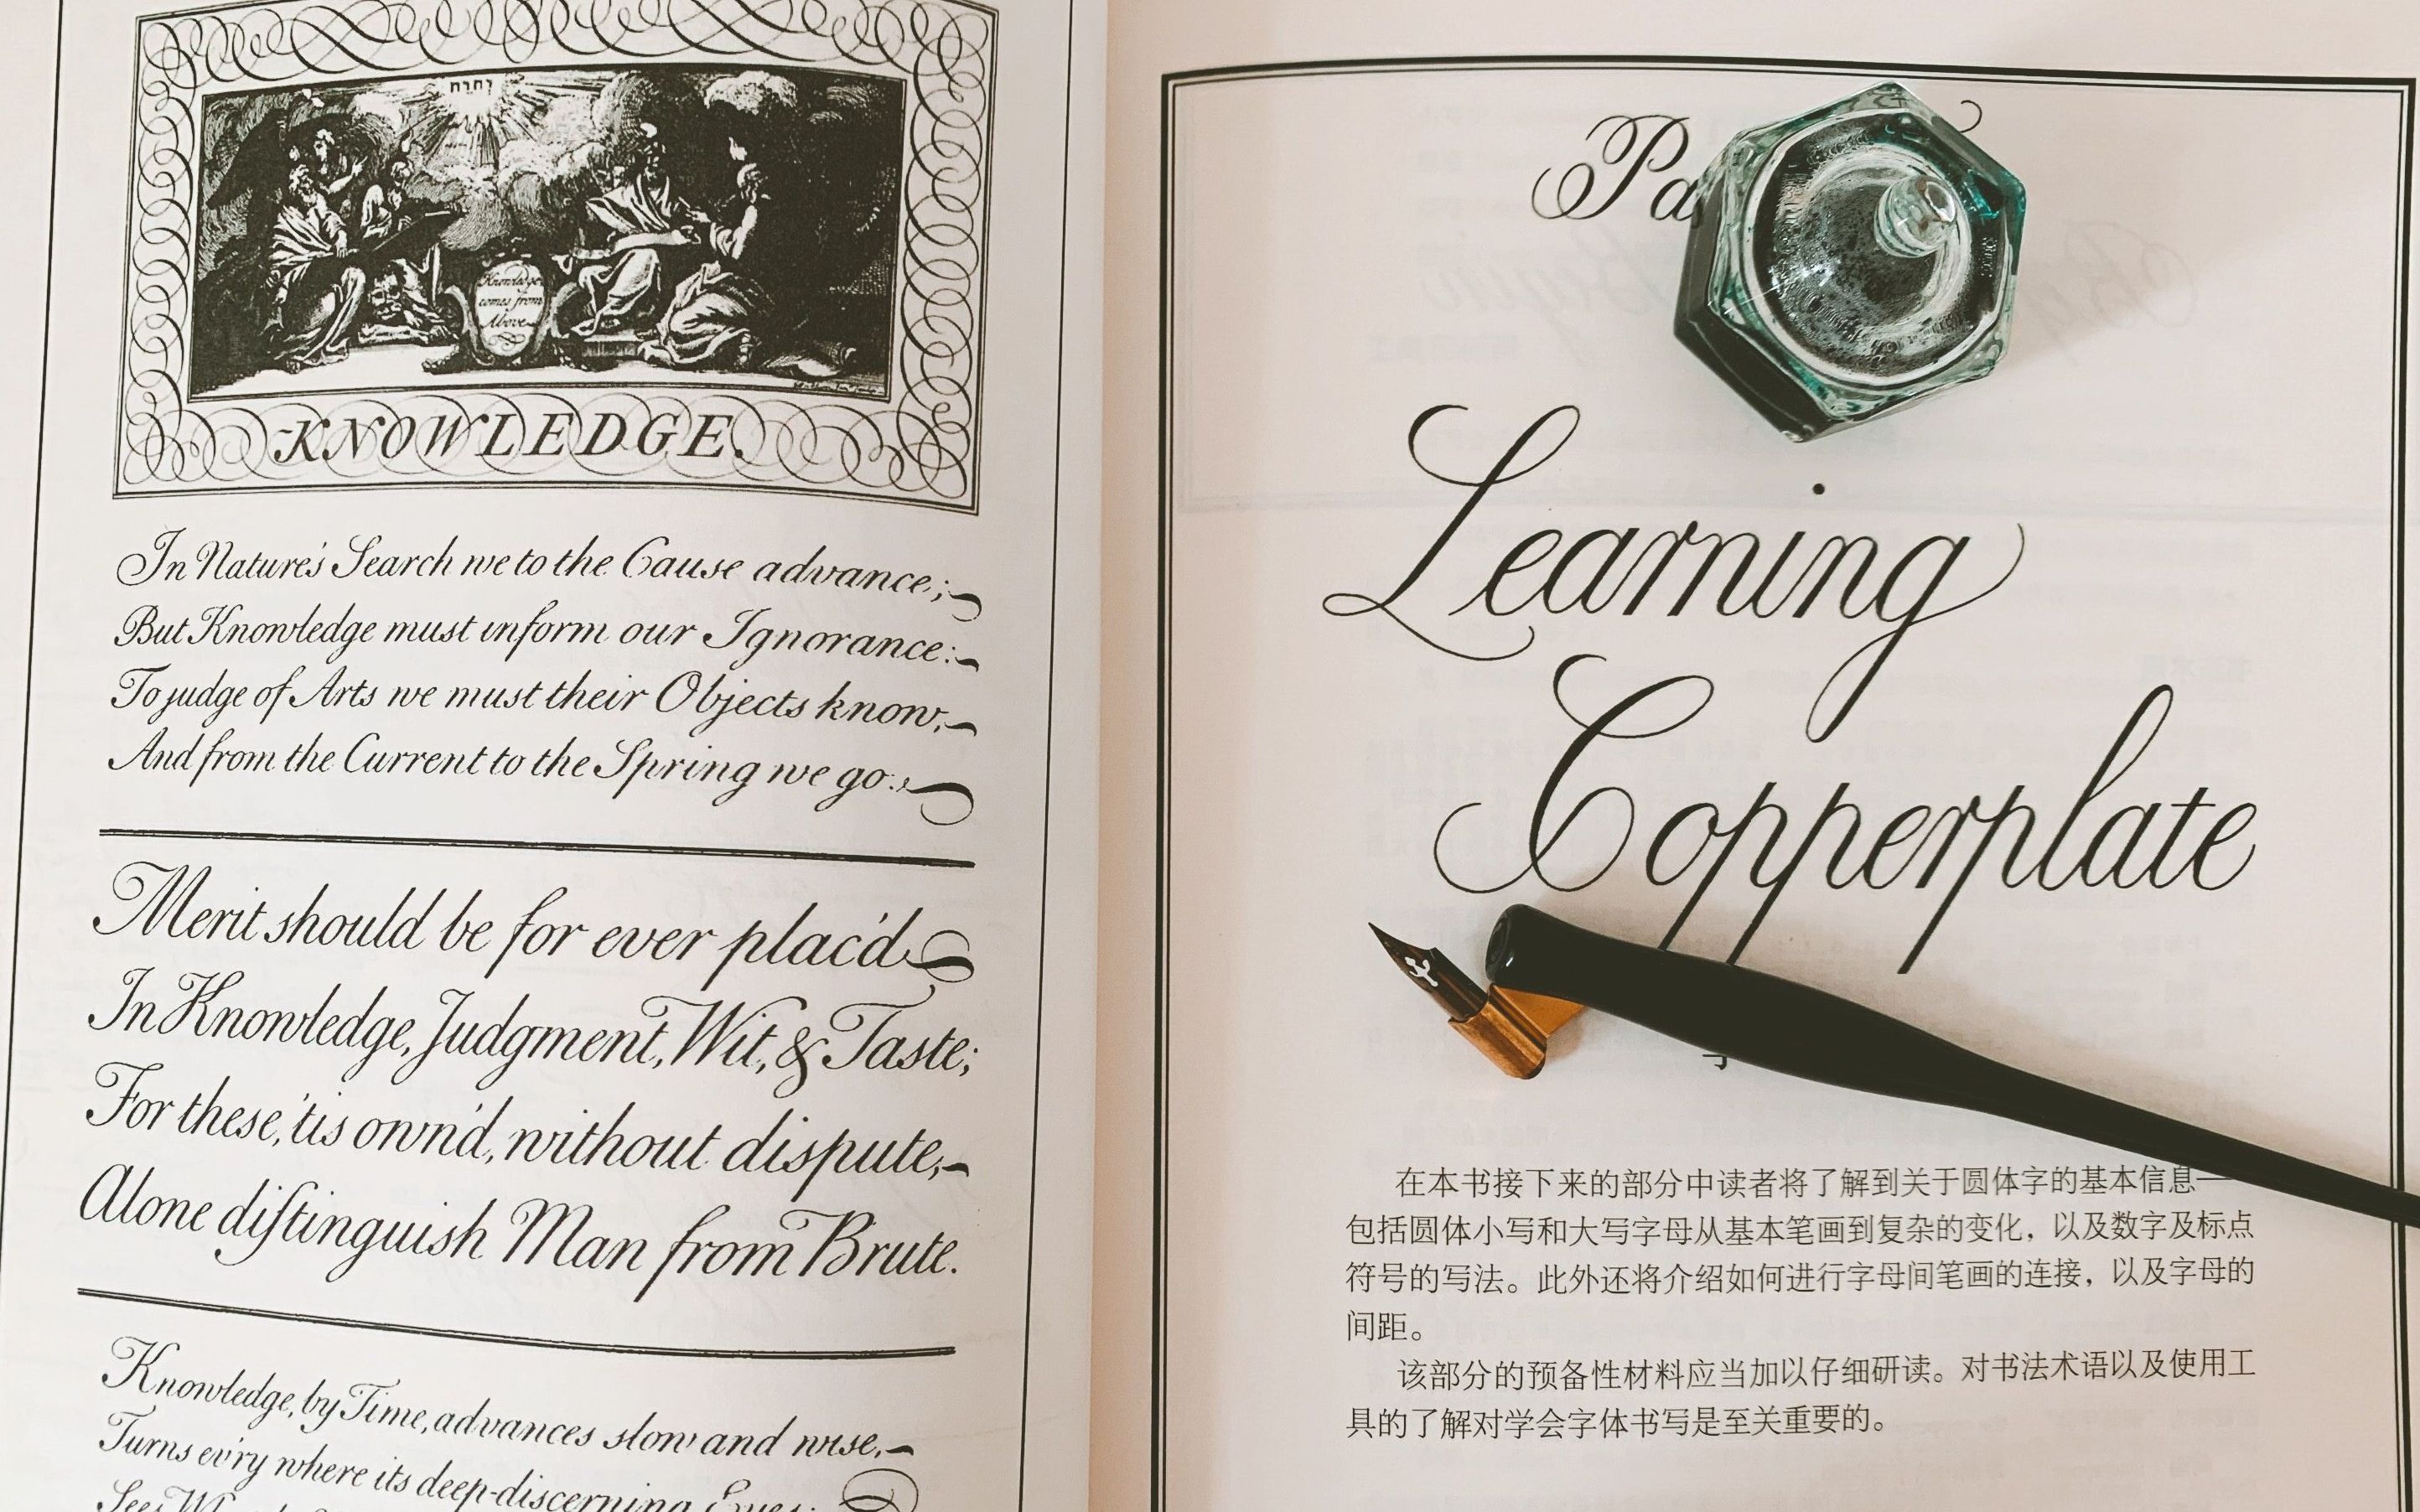 Knowledge
comes from
Above
KNOWLEDGE.
In Nature's Search we to the Cause advance;
But Knowledge must inform our Ignorance:
To judge of Arts we must their Objects know,
And from the Current to the Spring we go:
Merit should be for ever plac'd
In Knowledge, Judgment, Wit, & Taste;
For these, 'tis own'd, without dispute,
Alone diſtinguish Man from Brute.
Knowledge, by Time, advances slow and wise,
Turns ev'ry where its deep-discerning Eyes;
Sees
Learning
Copperplate
在本书接下来的部分中读者将了解到关于圆体字的基本信息—
包括圆体小写和大写字母从基本笔画到复杂的变化，以及数字及标点
符号的写法。此外还将介绍如何进行字母间笔画的连接，以及字母的
间距。
该部分的预备性材料应当加以仔细研读。对书法术语以及使用工
具的了解对学会字体书写是至关重要的。